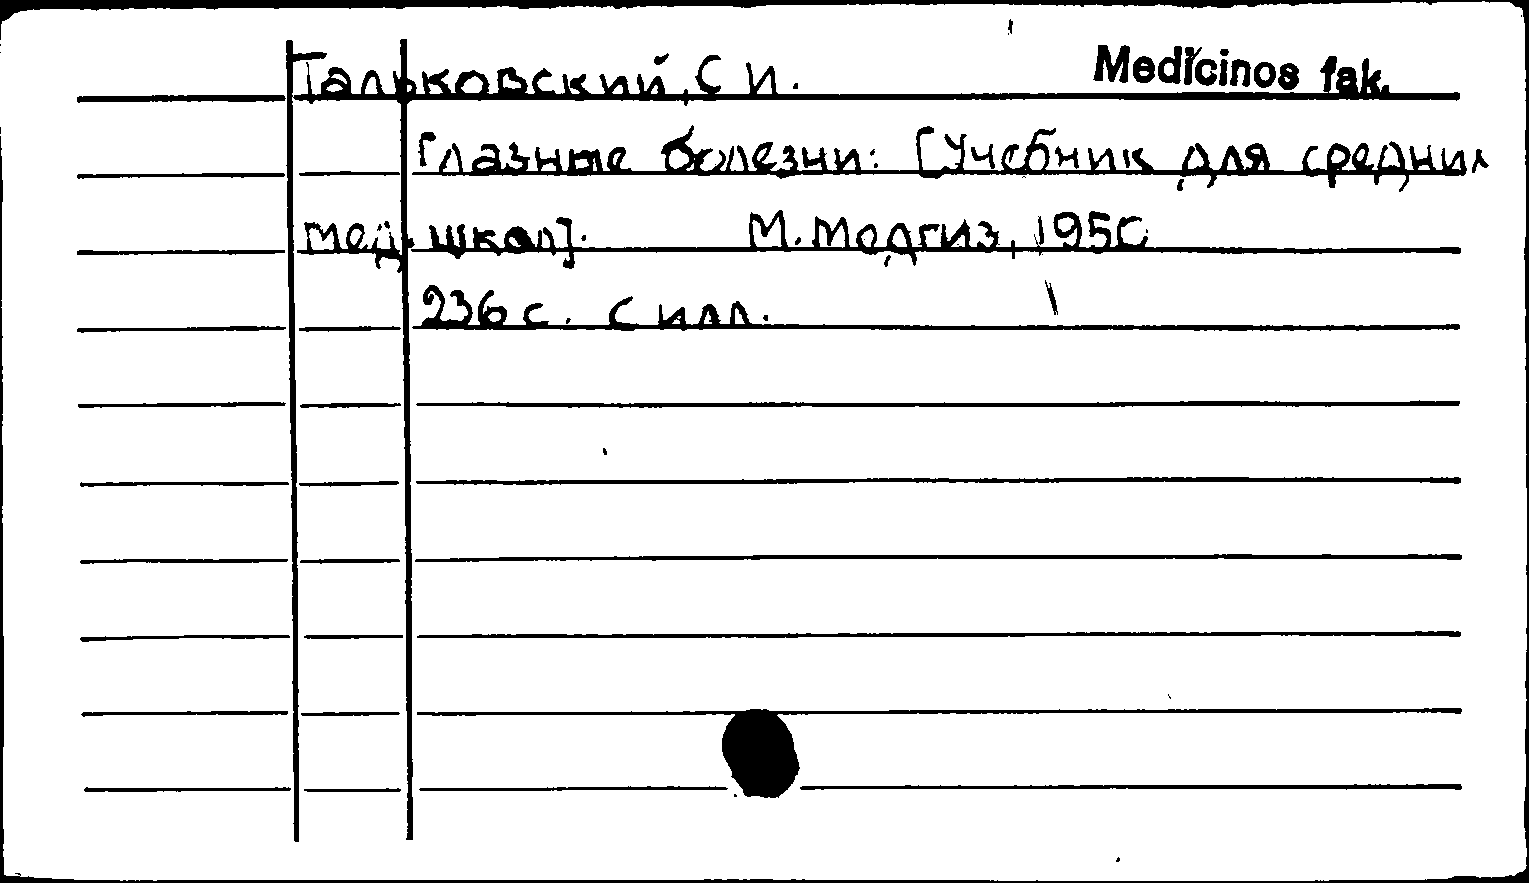 Тальковский, С И. Medicinos fak.
Глазные болезни: [Учебник для средних
мед. школ]. М. Медгиз, 1950
236 с. с илл.